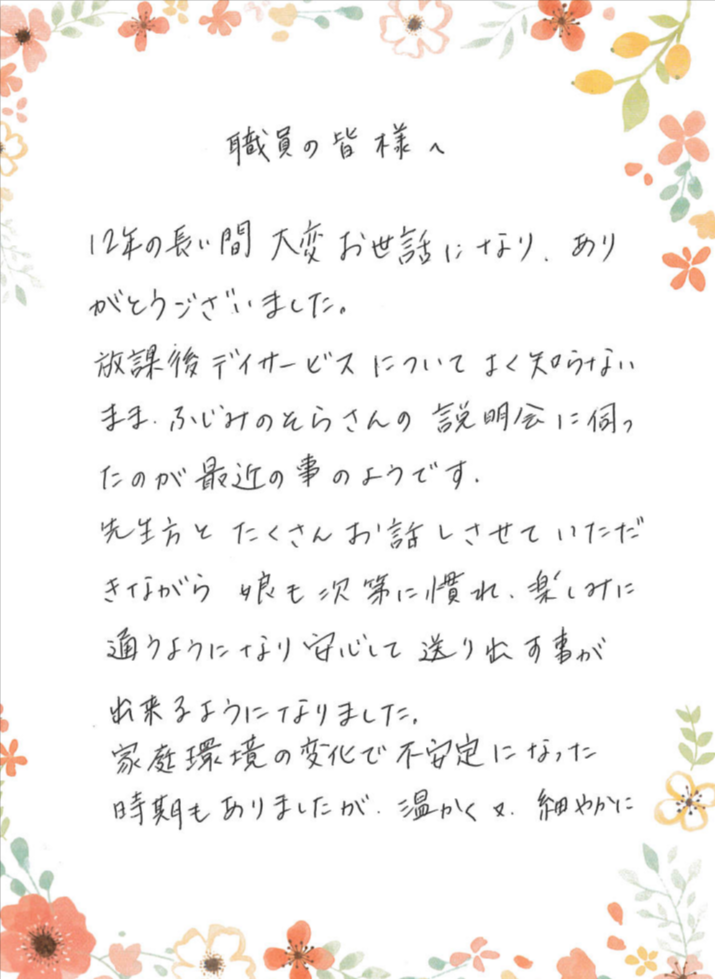 職員の皆様へ
12年の長い間 大変お世話になり、あり
がとうございました。
放課後デイサービスについてよく知らない
まま、ふじみのそらさんの説明会に伺っ
たのが最近の事のようです。
先生方とたくさんお話しさせていただ
きながら 娘も次第に慣れ、楽しみに
通うようになり安心して送り出す事が
出来るようになりました。
家庭環境の変化で不安定になった
時期もありましたが、温かく又、細やかに